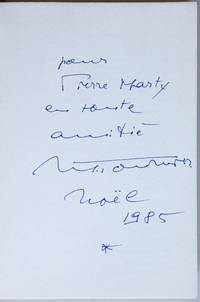 pour
Pierre Marty
en toute
amitié
Noël
1985
*